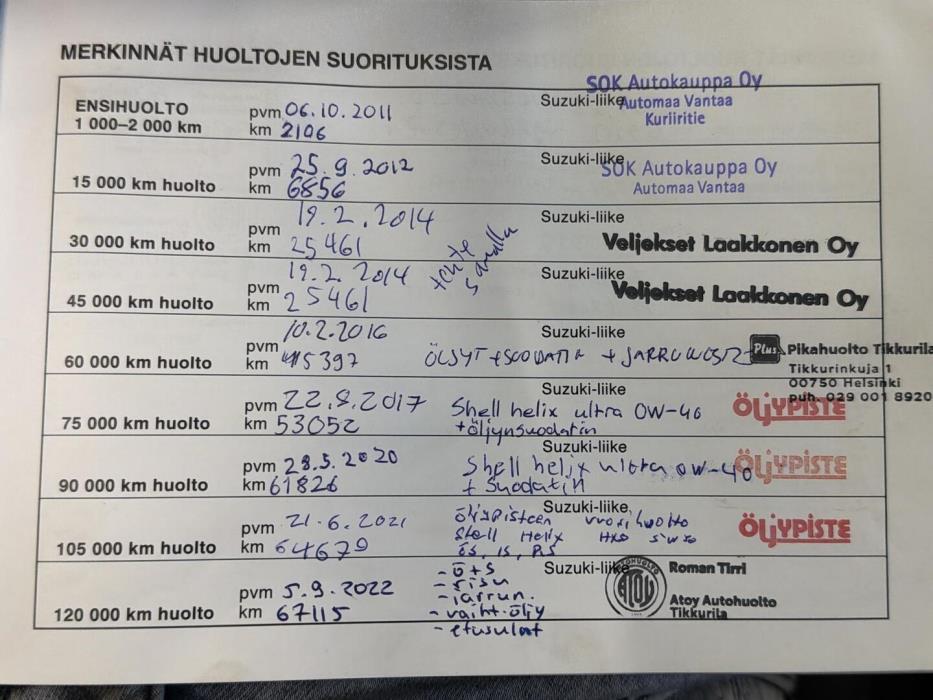 MERKINNÄT HUOLTOJEN SUORITUKSISTA
ENSIHUOLTO
1 000–2 000 km
pvm 06.10.2011
km 2106
Suzuki-liike
SOK Autokauppa Oy
Automaa Vantaa
Kuriiritie
15 000 km huolto
pvm 25.9.2012
km 6856
Suzuki-liike
SOK Autokauppa Oy
Automaa Vantaa
30 000 km huolto
pvm 19.2.2014
km 25461
Suzuki-liike
Veljekset Laakkonen Oy
45 000 km huolto
pvm 19.2.2014
km 25461
Suzuki-liike
Veljekset Laakkonen Oy
60 000 km huolto
pvm 10.2.2016
km 45397
ÖLJYT + SUODATIN +
Suzuki-liike
Plus Pikahuolto Tikkurila
Tikkurinkuja 1
00750 Helsinki
puh. 029 001 8920
75 000 km huolto
pvm 22.8.2017
km 53052
Suzuki-liike
Shell helix ultra 0W-40
+öljynsuodatin
ÖLJYPISTE
90 000 km huolto
pvm 28.5.2020
km 61826
Suzuki-liike
Shell helix ultra 0W-40
+ Suodatin
ÖLJYPISTE
105 000 km huolto
pvm 21.6.2021
km 64679
Suzuki-liike
Öljypisteen vuosihuolto
Shell Helix HX8 5W30
ÖS, IS, RS
ÖLJYPISTE
120 000 km huolto
pvm 5.9.2022
km 67115
- Ö+S
- sisu
- jarrun.
- vaiht.öljy
- etusulat
Suzuki-liike
AUTOHUOLTO
ATOY
Roman Tirri
Atoy Autohuolto
Tikkurila